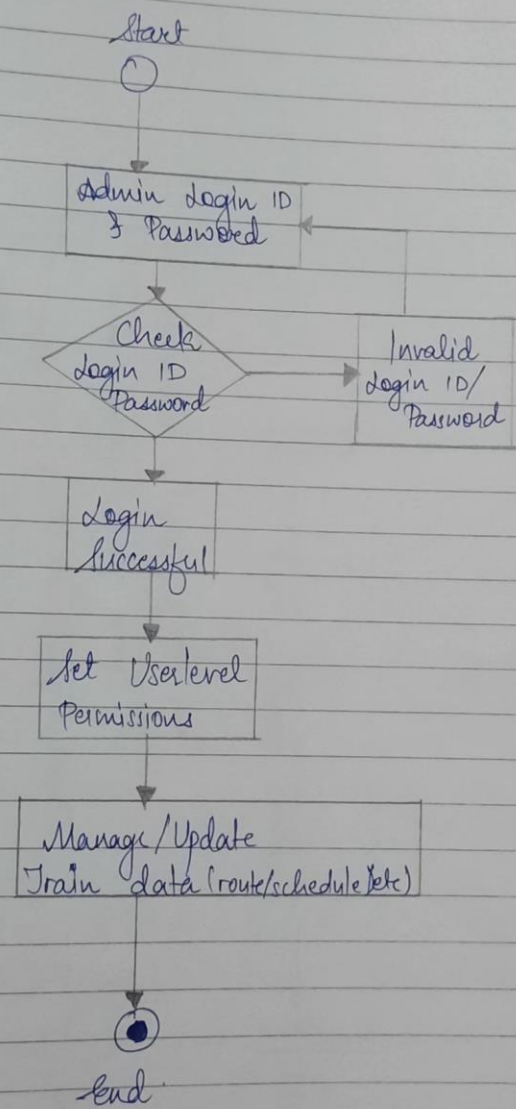 Start
Admin Login ID
& Password
Check
Login ID
Password
Invalid
Login ID/
Password
Login
Successful
Set Userlevel
Permissions
Manage/Update
Train data (route/schedule)etc)
End